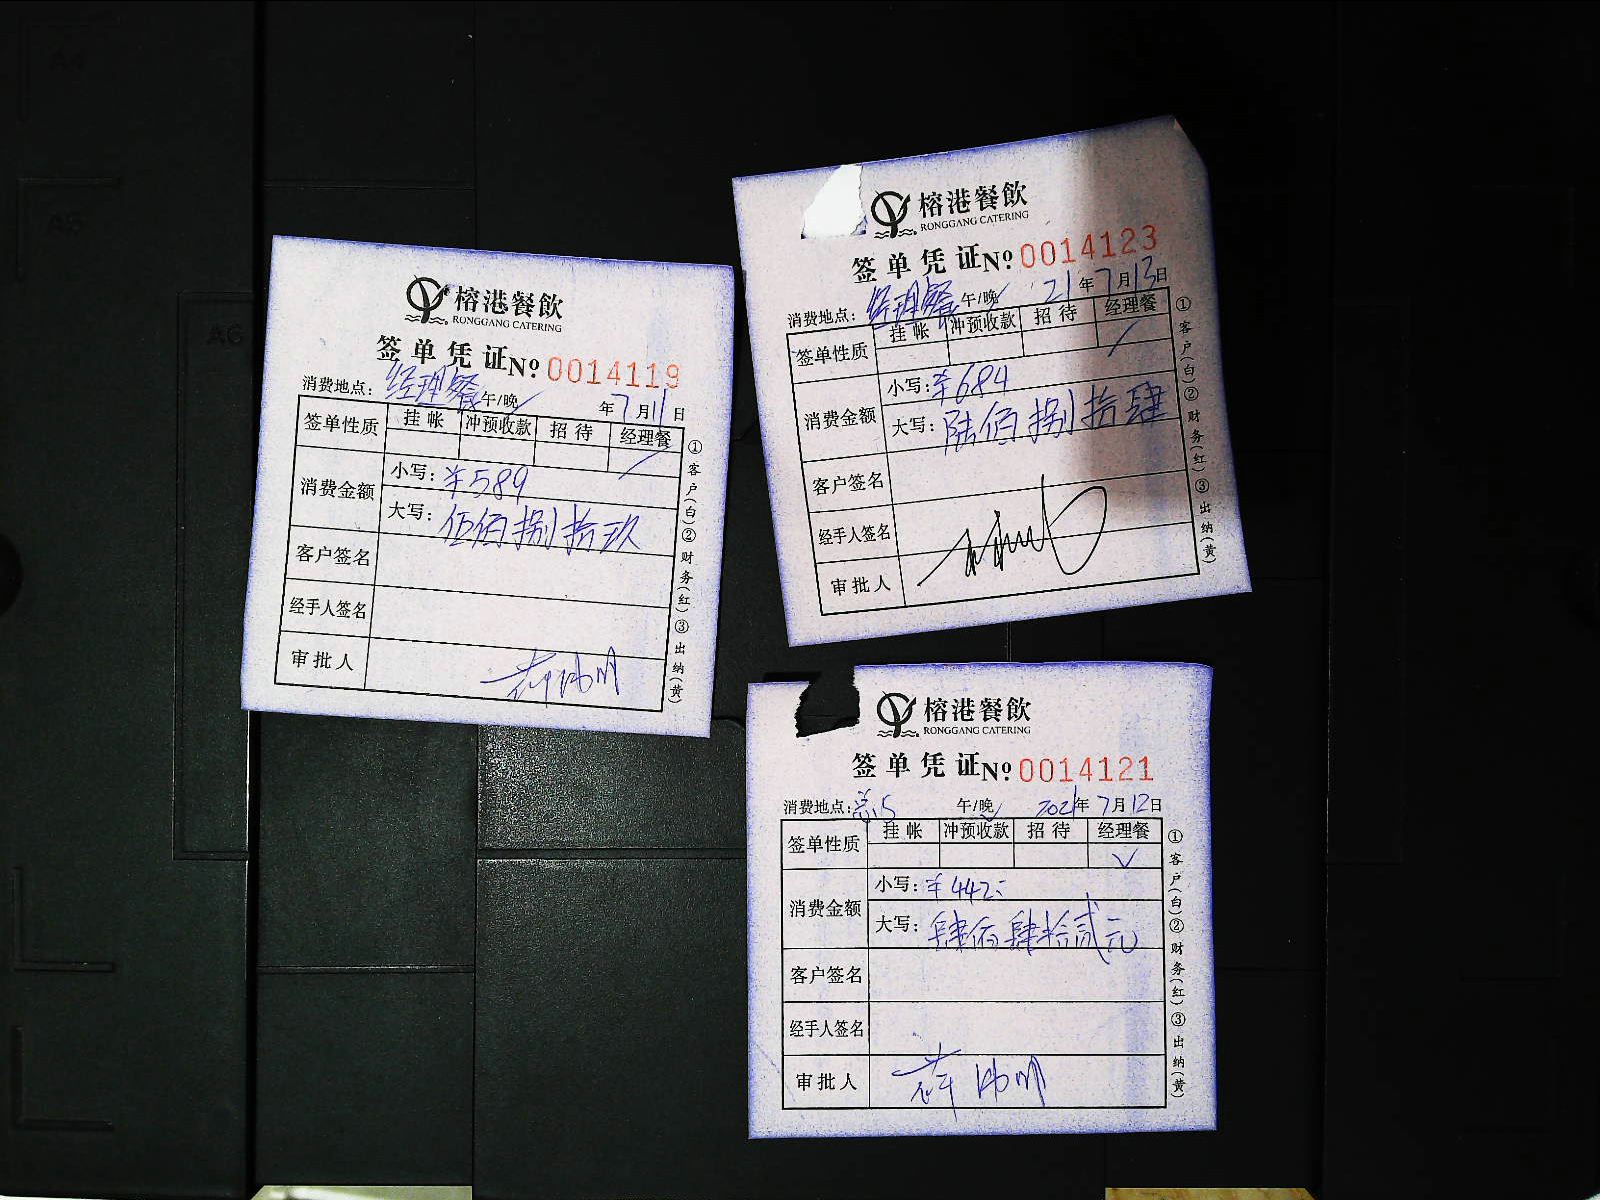 榕港餐飲
RONGGANG CATERING
签单凭证 Nº 0014119
消费地点: 经理餐 午/晚 年7月11日
签单性质 挂帐 冲预收款 招待 经理餐
消费金额 小写: ¥589
大写: 伍佰捌拾玖
客户签名
经手人签名
审批人
①客户(白)②财务(红)③出纳(黄)
榕港餐飲
RONGGANG CATERING
签单凭证 Nº 0014123
消费地点: 经理餐 午/晚 21年7月13日
签单性质 挂帐 冲预收款 招待 经理餐
消费金额 小写: ¥684
大写: 陆佰捌拾肆
客户签名
经手人签名
审批人
①客户(白)②财务(红)③出纳(黄)
榕港餐飲
RONGGANG CATERING
签单凭证 Nº 0014121
消费地点: 午/晚 2021年7月12日
签单性质 挂帐 冲预收款 招待 经理餐
✓
消费金额 小写: ¥442
大写: 肆佰肆拾贰元
客户签名
经手人签名
审批人
①客户(白)②财务(红)③出纳(黄)
A4
A5
A6